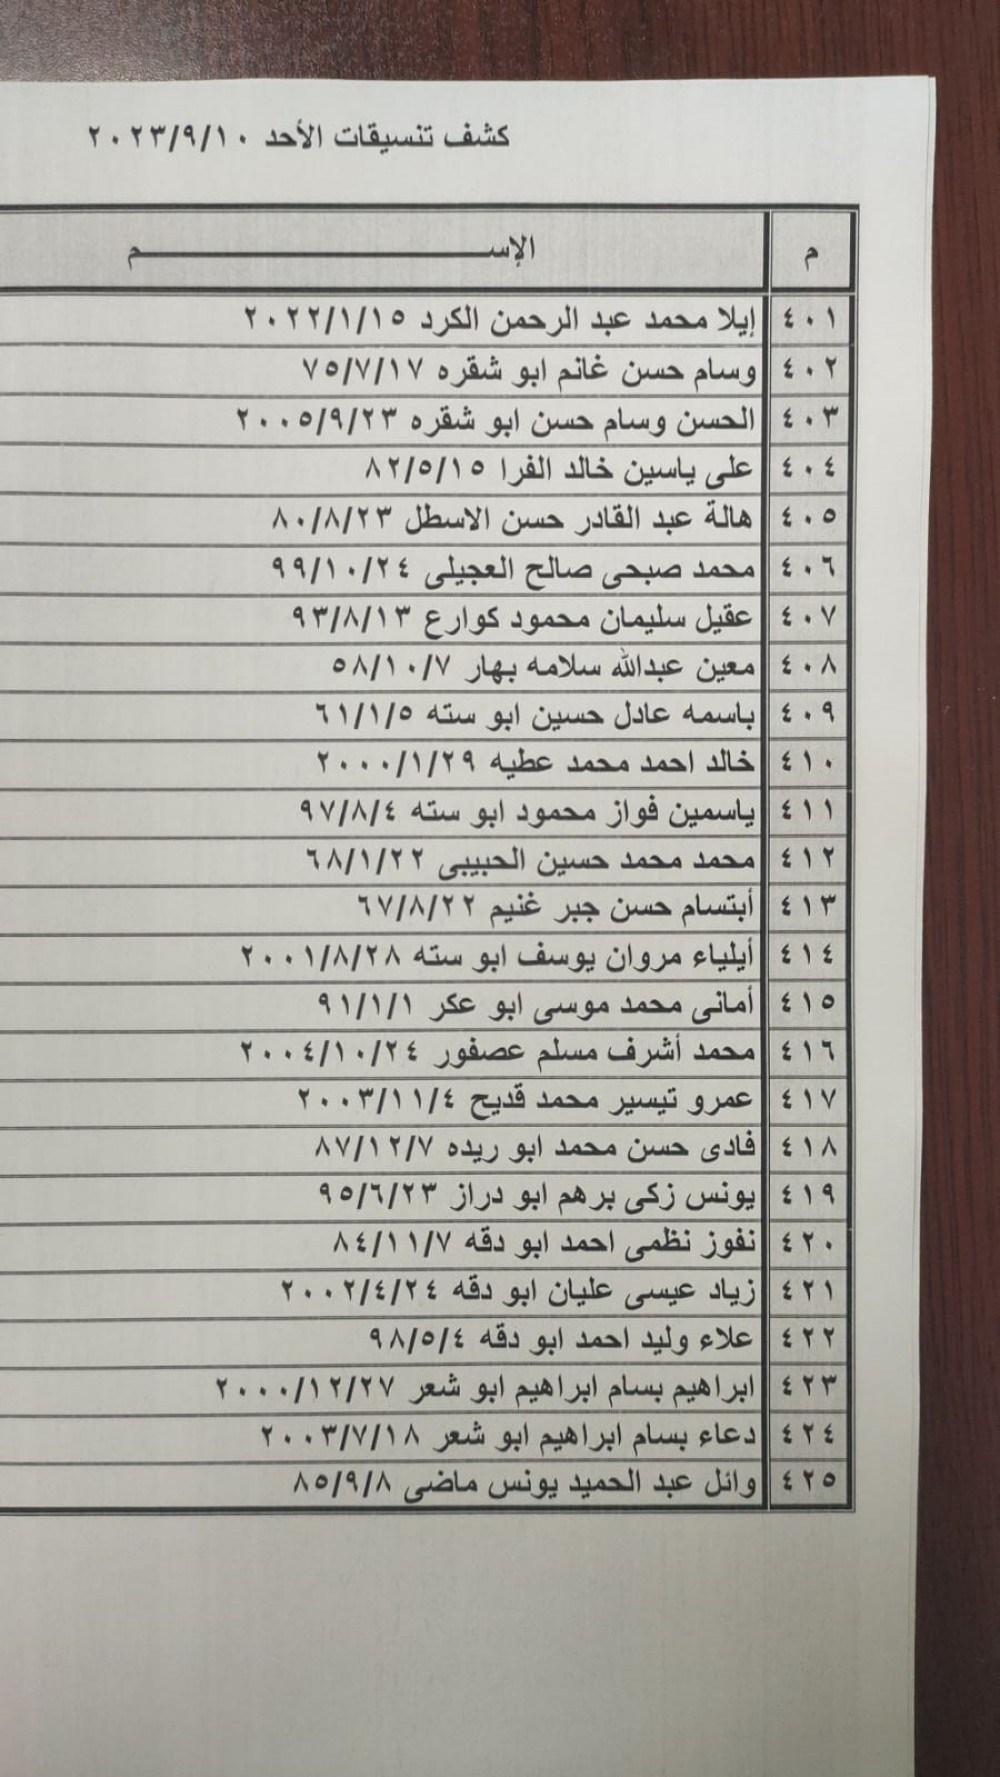 كشف تنسيقات الأحد ٢٠٢٣/٩/١٠
م الإســـــــــــــــــــــم
٤٠١ إيلا محمد عبد الرحمن الكرد ٢٠٢٢/١/١٥
٤٠٢ وسام حسن غانم ابو شقره ٧٥/٧/١٧
٤٠٣ الحسن وسام حسن ابو شقره ٢٠٠٥/٩/٢٣
٤٠٤ على ياسين خالد الفرا ٨٢/٥/١٥
٤٠٥ هالة عبد القادر حسن الاسطل ٨٠/٨/٢٣
٤٠٦ محمد صبحى صالح العجيلى ٩٩/١٠/٢٤
٤٠٧ عقيل سليمان محمود كوارع ٩٣/٨/١٣
٤٠٨ معين عبدالله سلامه بهار ٥٨/١٠/٧
٤٠٩ باسمه عادل حسين ابو سته ٦١/١/٥
٤١٠ خالد احمد محمد عطيه ٢٠٠٠/١/٢٩
٤١١ ياسمين فواز محمود ابو سته ٩٧/٨/٤
٤١٢ محمد محمد حسين الحبيبى ٦٨/١/٢٢
٤١٣ أبتسام حسن جبر غنيم ٦٧/٨/٢٢
٤١٤ أيلياء مروان يوسف ابو سته ٢٠٠١/٨/٢٨
٤١٥ أمانى محمد موسى ابو عكر ٩١/١/١
٤١٦ محمد أشرف مسلم عصفور ٢٠٠٤/١٠/٢٤
٤١٧ عمرو تيسير محمد قديح ٢٠٠٣/١١/٤
٤١٨ فادى حسن محمد ابو ريده ٨٧/١٢/٧
٤١٩ يونس زكى برهم ابو دراز ٩٥/٦/٢٣
٤٢٠ نفوز نظمى احمد ابو دقه ٨٤/١١/٧
٤٢١ زياد عيسى عليان ابو دقه ٢٠٠٢/٤/٢٤
٤٢٢ علاء وليد احمد ابو دقه ٩٨/٥/٤
٤٢٣ ابراهيم بسام ابراهيم ابو شعر ٢٠٠٠/١٢/٢٧
٤٢٤ دعاء بسام ابراهيم ابو شعر ٢٠٠٣/٧/١٨
٤٢٥ وائل عبد الحميد يونس ماضى ٨٥/٩/٨